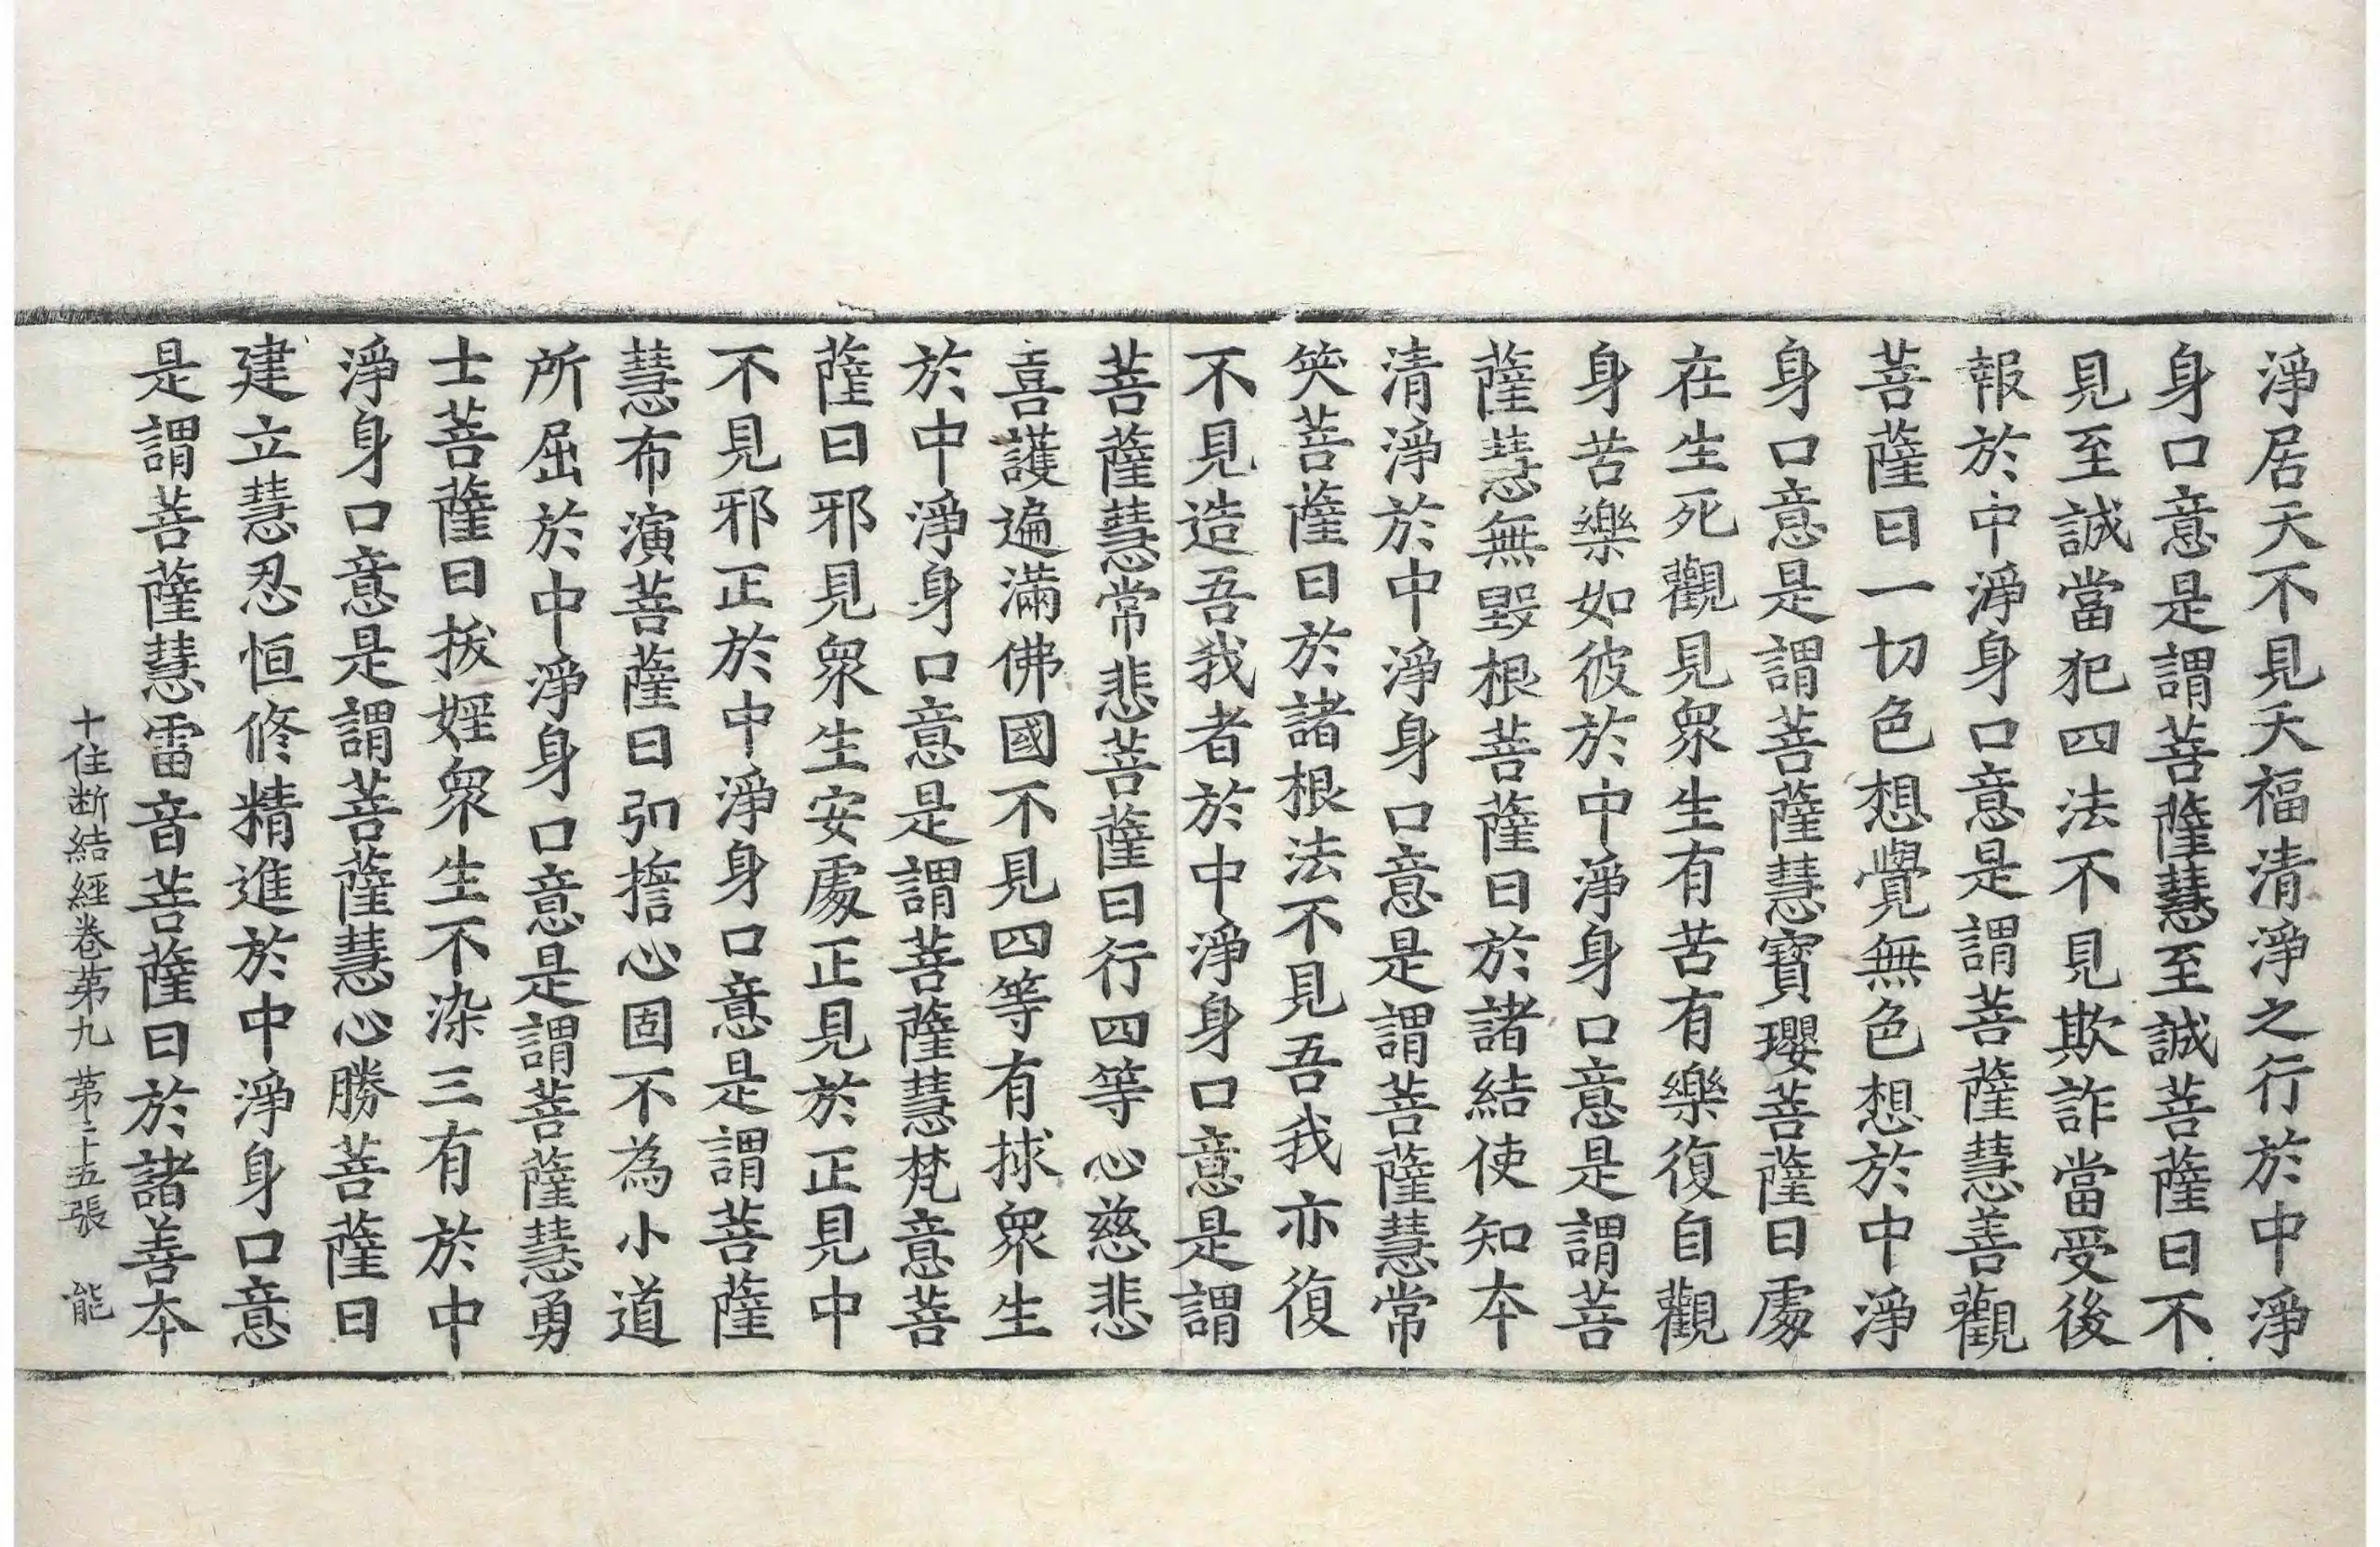 淨居天不見天福清淨之行於中淨
身口意是謂菩薩慧至誠菩薩曰不
見至誠當犯四法不見欺詐當受後
報於中淨身口意是謂菩薩慧善觀
菩薩曰一切色想覺無色想於中淨
身口意是謂菩薩慧寶瓔菩薩曰處
在生死觀見衆生有苦有樂復自觀
身苦樂如彼於中淨身口意是謂菩
薩慧無毀根菩薩曰於諸結使知本
清淨於中淨身口意是謂菩薩慧常
笑菩薩曰於諸根法不見吾我亦復
不見造吾我者於中淨身口意是謂
菩薩慧常悲菩薩曰行四等心慈悲
喜護遍滿佛國不見四等有捄衆生
於中淨身口意是謂菩薩慧梵意菩
薩曰邪見衆生安處正見於正見中
不見邪正於中淨身口意是謂菩薩
慧布演菩薩曰弘擔心固不為小道
所屈於中淨身口意是謂菩薩慧勇
士菩薩曰拔婬衆生不染三有於中
淨身口意是謂菩薩慧心勝菩薩曰
建立慧忍恒修精進於中淨身口意
是謂菩薩慧雷音菩薩曰於諸善本
十住断結經卷第九 第二十五張 能